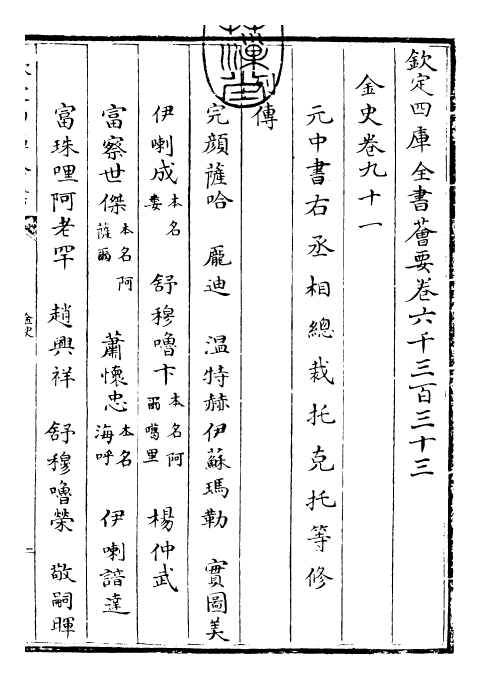 欽定四庫全書薈要卷六千三百三十三
金史卷九十一
元中書右丞相總裁托克托等修
列傳
完顔薩哈 龎迪 温特赫伊蘇瑪勒 實圖美
伊喇成本名婁 舒穆嚕卞本名阿爾噶里 楊仲武
富察世傑本名阿薩爾 蕭懷忠本名海呼 伊喇諳達
富珠哩阿老罕 趙興祥 舒穆嚕榮 敬嗣暉
金史